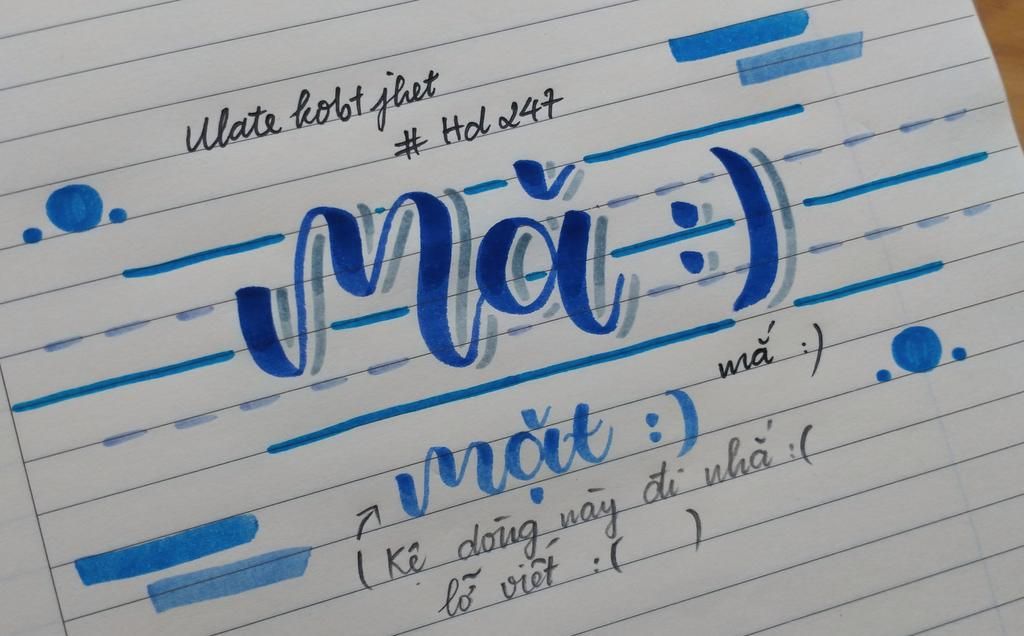 Ulate kobt jhet
# Hd 247
Mă :)
mắ :)
mặt :)
( Kệ dòng này đi nhá :(
lỡ viết :( )